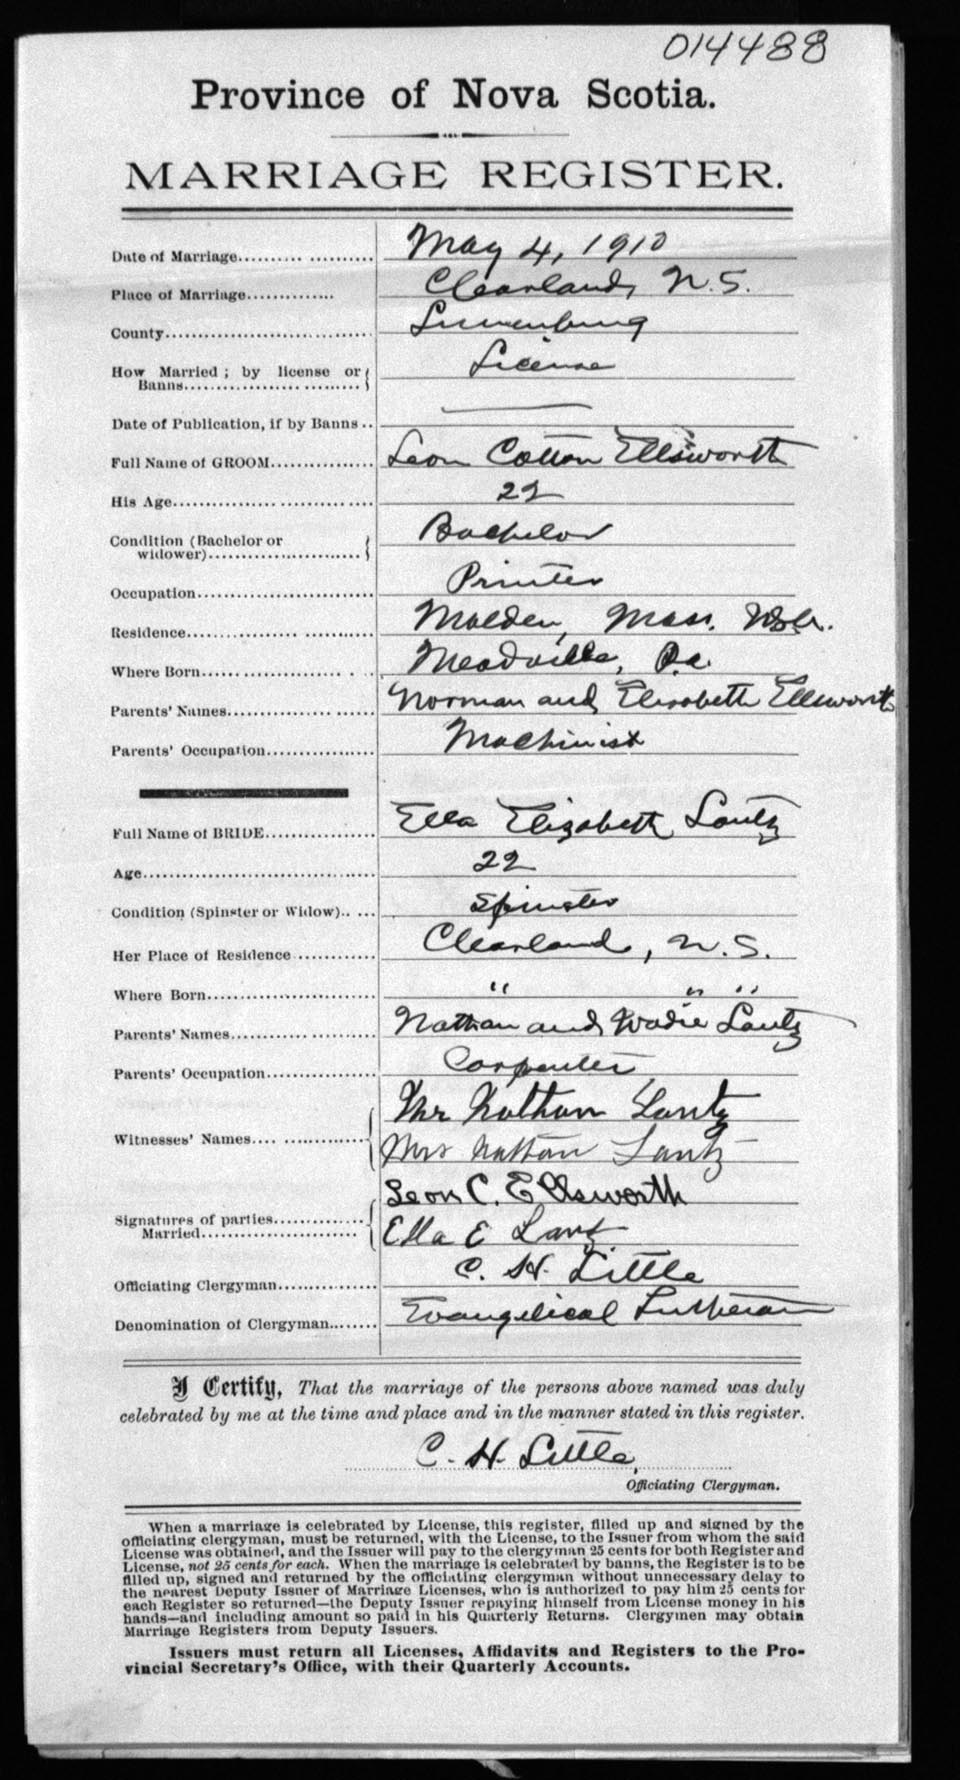 014488
Province of Nova Scotia.
MARRIAGE REGISTER.
Date of Marriage.................... May 4, 1910
Place of Marriage............. Clearland, N.S.
County............................. Lunenburg
How Married ; by license or
Banns............................. License
Date of Publication, if by Banns .. —
Full Name of GROOM............... Leon Cotton Ellsworth
His Age............................. 22
Condition (Bachelor or
widower)....................... Bachelor
Occupation......................... Printer
Residence........................... Malden, Mass. U.S.A.
Where Born......................... Meadville, Pa.
Parents' Names..................... Norman and Elizabeth Ellsworth
Parents' Occupation................ Machinist
Full Name of BRIDE................ Ella Elizabeth Lantz
Age................................. 22
Condition (Spinster or Widow)..... Spinster
Her Place of Residence ............ Clearland, N.S.
Where Born......................... " " "
Parents' Names..................... Nathan and Wadie Lantz
Parents' Occupation................ Carpenter
Witnesses' Names................... Mr Nathan Lantz
Mrs Nathan Lantz
Signatures of parties.............. Leon C. Ellsworth
Married....................... Ella E Lantz
Officiating Clergyman.............. C. H. Little
Denomination of Clergyman....... Evangelical Lutheran
I Certify, That the marriage of the persons above named was duly
celebrated by me at the time and place and in the manner stated in this register.
C. H. Little,
Officiating Clergyman.
When a marriage is celebrated by License, this register, filled up and signed by the
officiating clergyman, must be returned, with the License, to the Issuer from whom the said
License was obtained, and the Issuer will pay to the clergyman 25 cents for both Register and
License, not 25 cents for each. When the marriage is celebrated by banns, the Register is to be
filled up, signed and returned by the officiating clergyman without unnecessary delay to
the nearest Deputy Issuer of Marriage Licenses, who is authorized to pay him 25 cents for
each Register so returned—the Deputy Issuer repaying himself from License money in his
hands—and including amount so paid in his Quarterly Returns. Clergymen may obtain
Marriage Registers from Deputy Issuers.
Issuers must return all Licenses, Affidavits and Registers to the Pro-
vincial Secretary's Office, with their Quarterly Accounts.